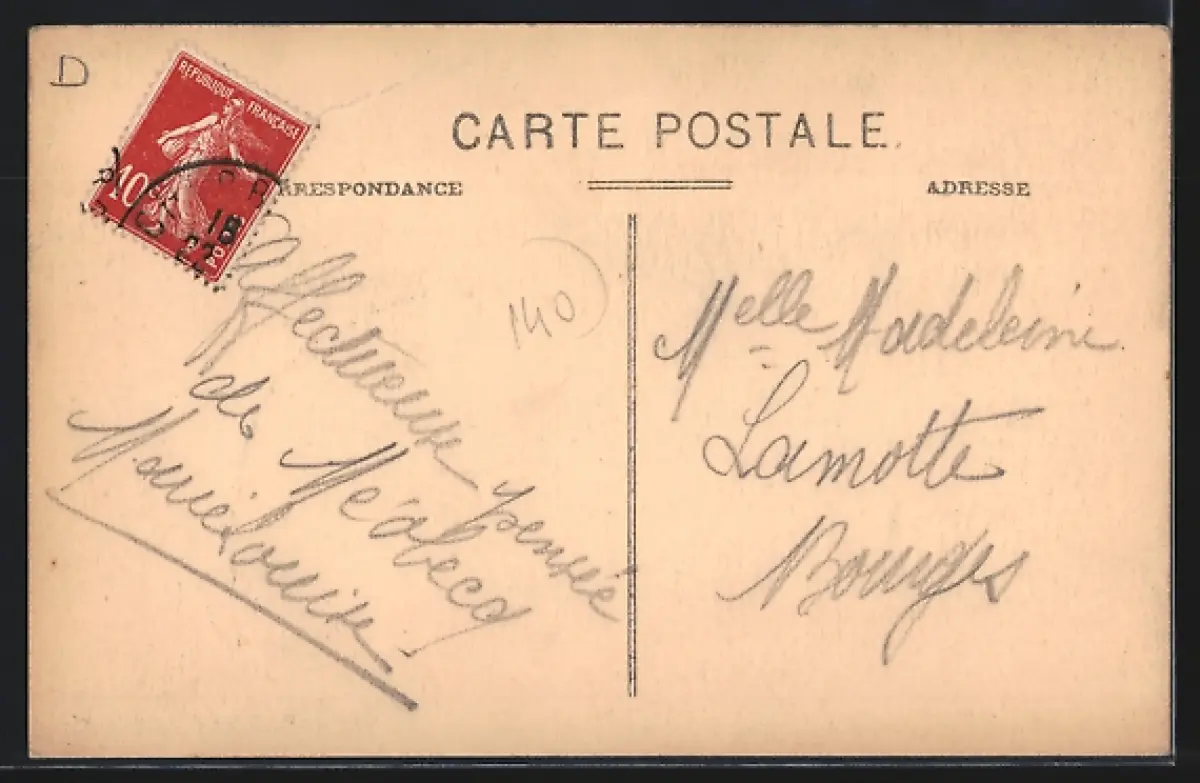 D
REPUBLIQUE FRANÇAISE
10
18
22
CARTE POSTALE
RRESPONDANCE
ADRESSE
140
Affectueuse pensée
de Méobecq
Marie Louise
Melle Madeleine
Lamotte
Bourges